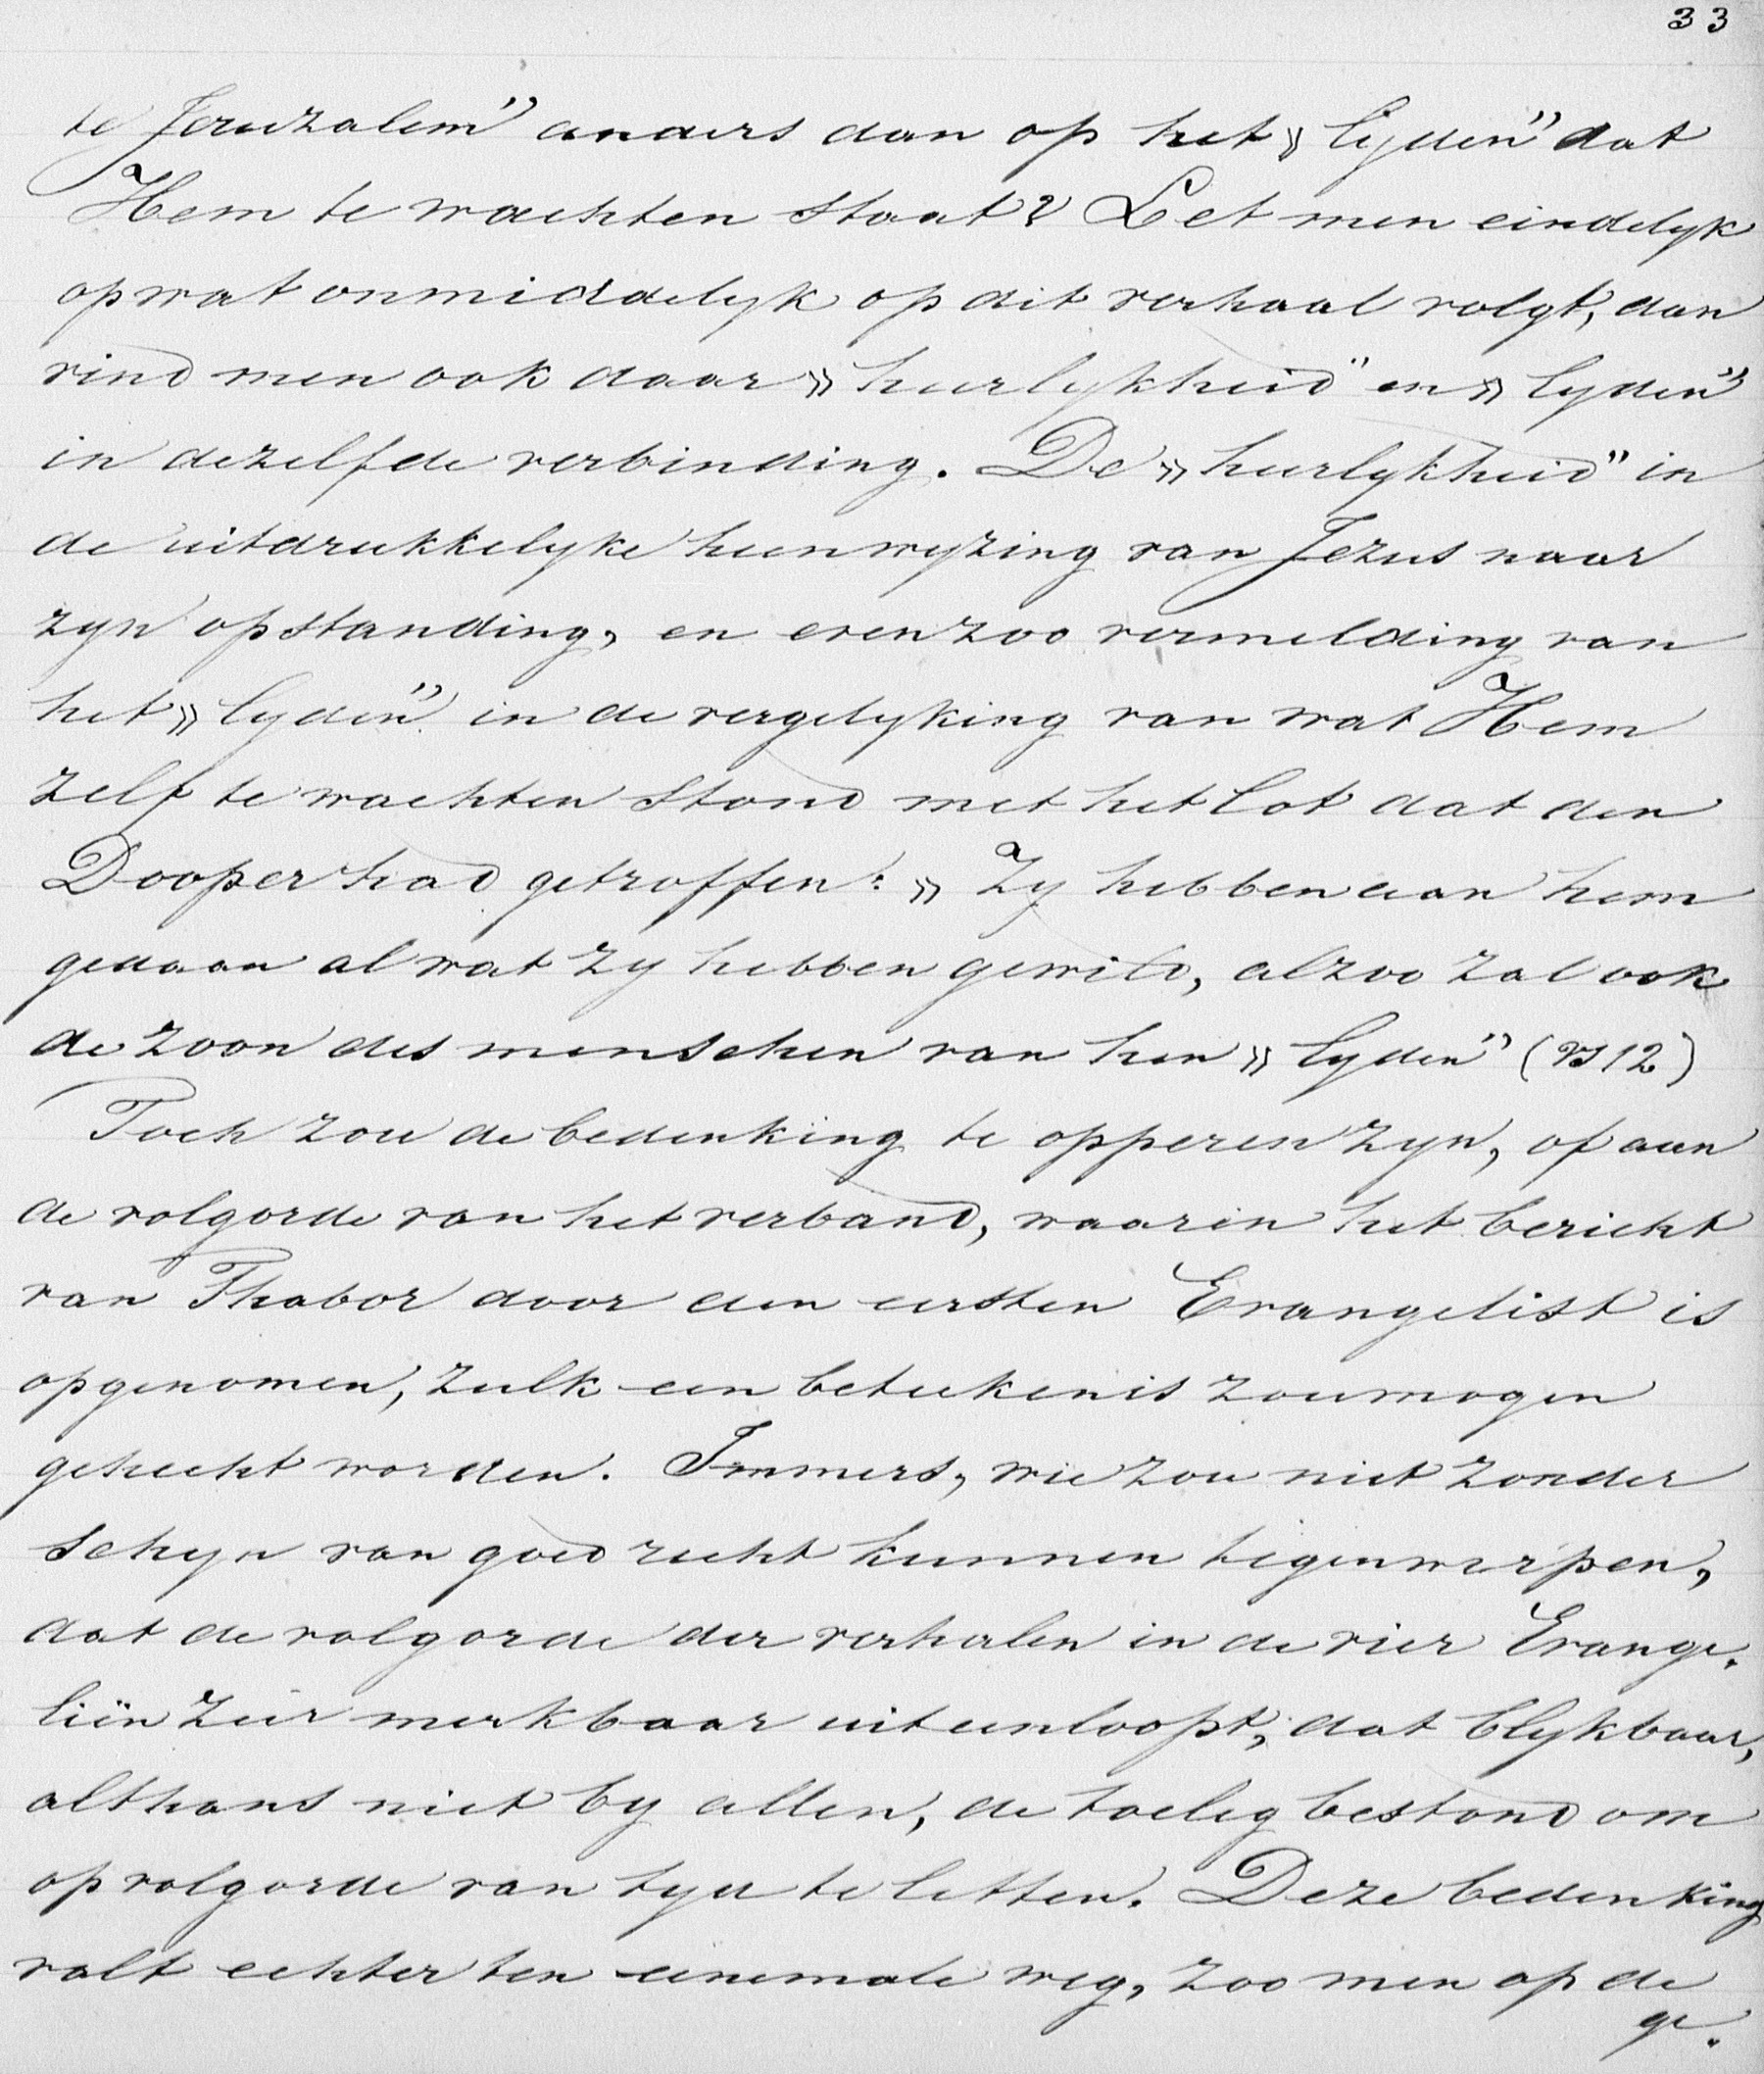 33
te Jeruzalem” anders dan op het „lijden” dat
Hem te wachten staat? Let men eindelyk
op wat onmiddelyk op dit verhaal volgt, dan
vind men ook daar „heerlykheid” en „lyden”
in dezelfde verbinding. De „heerlykheid” in
de uitdrukkelyke heenwyzing van Jezus naar
zyn opstanding, en evenzoo vermelding van
het „lyden” in de vergelyking van wat Hem
zelf te wachten stond met het lot dat den
Dooper had getroffen: „Zy hebben aan hem
gedaan al wat zy hebben gewild, alzoo zal ook
de zoon des menschen van hen „lyden” (vs 12)
Toch zou de bedenking te opperen zyn, of aan
de volgorde van het verband, waarin het bericht
van Thabor door den eersten Evangelist is
opgenomen, zulk een beteekenis zou mogen
gehecht worden. Immers, wie zou niet zonder
schyn van goed recht kunnen tegenwerpen,
dat de volgorde der verhalen in de vier Evange-
liën zeer merkbaar uiteenloopt, dat blykbaar,
althans niet by allen, de toeleg bestond om
op volgorde van tyd te letten. Deze bedenking
valt echter ten eenemale weg, zoo men op de
ge-